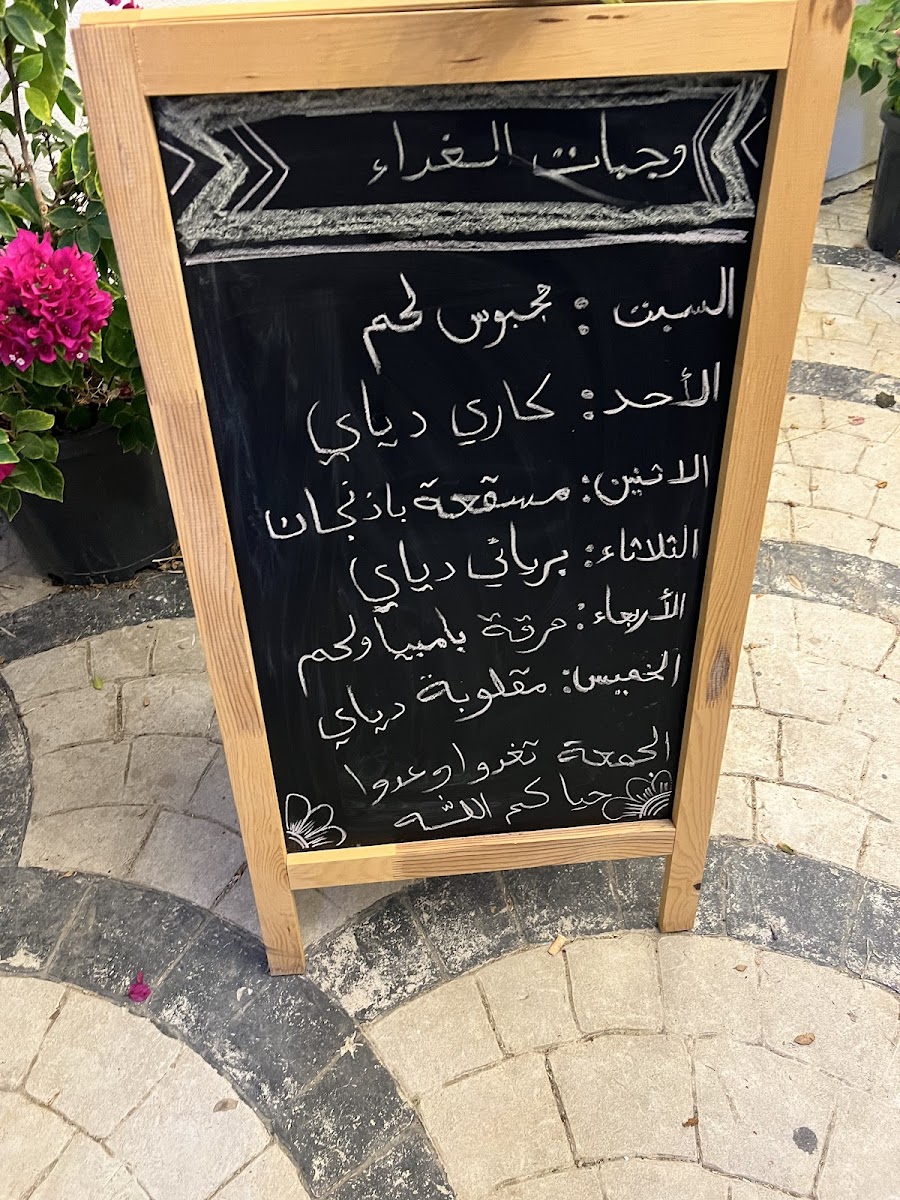 وجبات الغداء
السبت : مجبوس لحم
الأحد : كاري دياي
الاثنين : مسقعة باذنجان
الثلاثاء : برياني دياي
الأربعاء : مرقة بامييا ولحم
الخميس : مقلوبة دياي
الجمعة تغدوا وعدوا
حياكم الله